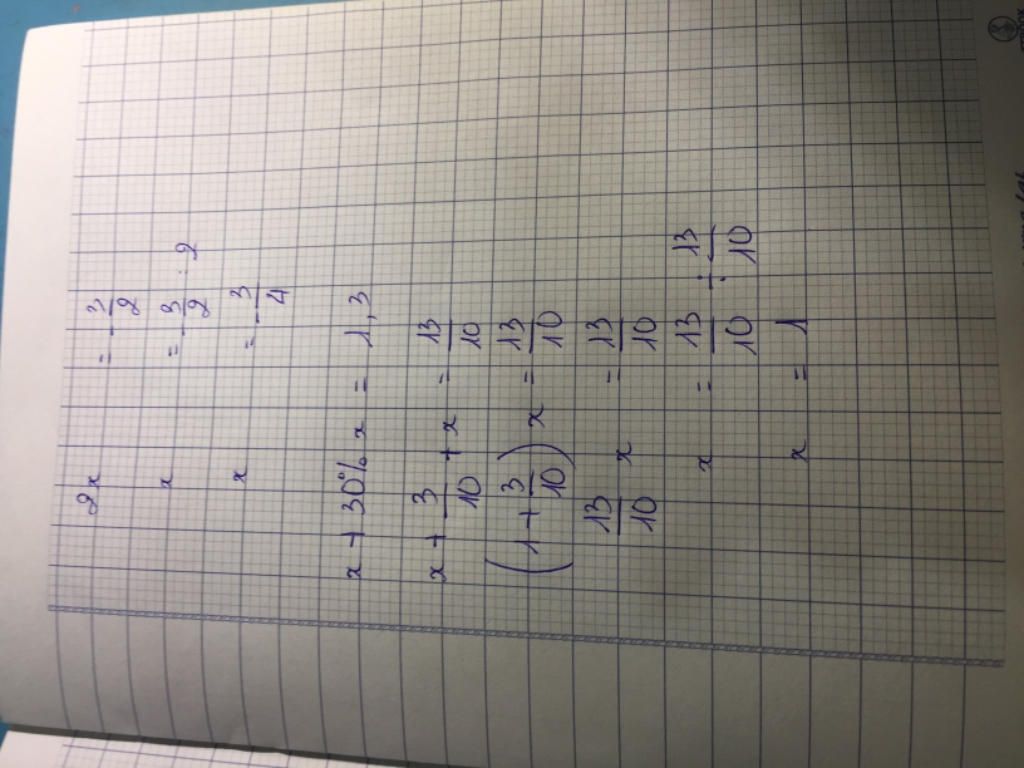 2x = 3/2
x = 3/2 : 2
x = 3/4
x + 30% x = 1,3
x + 3/10 + x = 13/10
(1 + 3/10) x = 13/10
13/10 x = 13/10
x = 13/10 : 13/10
x = 1